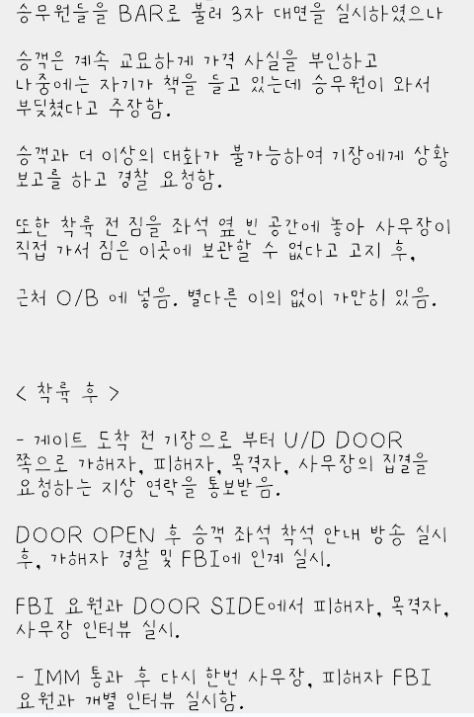 승무원들을 BAR로 불러 3자 대면을 실시하였으나
승객은 계속 교묘하게 가격 사실을 부인하고
나중에는 자기가 책을 들고 있는데 승무원이 와서
부딪쳤다고 주장함.
승객과 더 이상의 대화가 불가능하여 기장에게 상황
보고를 하고 경찰 요청함.
또한 착륙 전 짐을 좌석 옆 빈 공간에 놓아 사무장이
직접 가서 짐은 이곳에 보관할 수 없다고 고지 후,
근처 O/B 에 넣음. 별다른 이의 없이 가만히 있음.
< 착륙 후 >
- 게이트 도착 전 기장으로 부터 U/D DOOR
쪽으로 가해자, 피해자, 목격자, 사무장의 집결을
요청하는 지상 연락을 통보받음.
DOOR OPEN 후 승객 좌석 착석 안내 방송 실시
후, 가해자 경찰 및 FBI에 인계 실시.
FBI 요원과 DOOR SIDE에서 피해자, 목격자,
사무장 인터뷰 실시.
- IMM 통과 후 다시 한번 사무장, 피해자 FBI
요원과 개별 인터뷰 실시함.